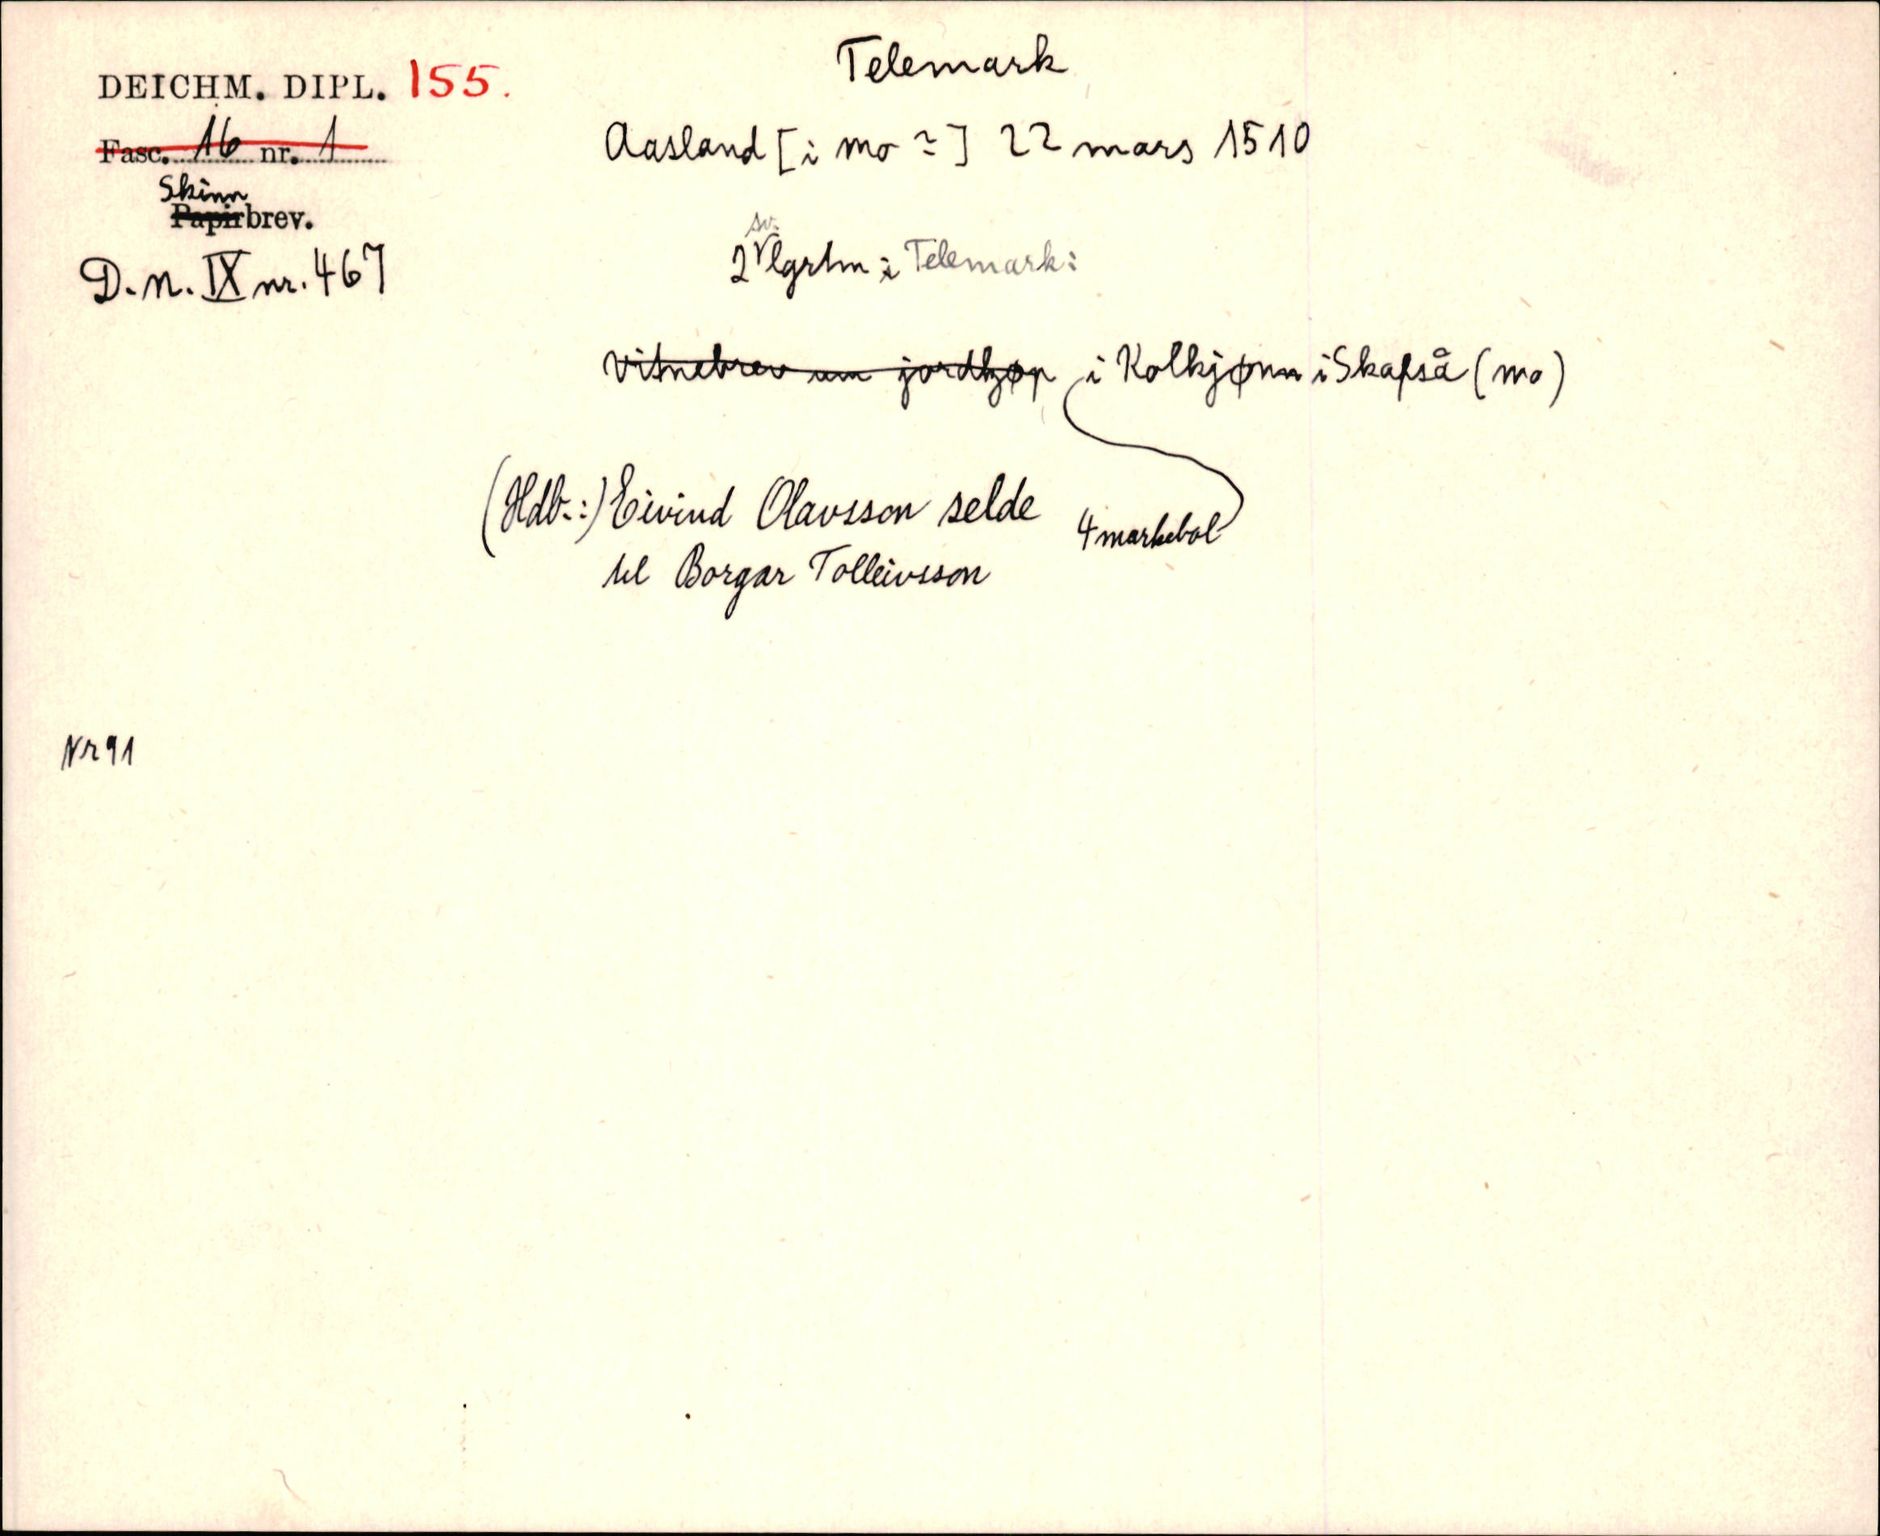 Telemark
DEICHM. DIPL. 155.
Fasc. 16 nr. 1
Aasland [i Mo ?] 22 mars 1510
Skinn
Papirbrev.
sv.
2 lgrtm i Telemark:
D. N. IX nr. 467
Vitnebrev um jordkjøp i Kolkjønn i Skafså (Mo)
(Hdb.:) Eivind Olavsson selde 4 markebol
til Borgar Tolleivsson
Nr 91